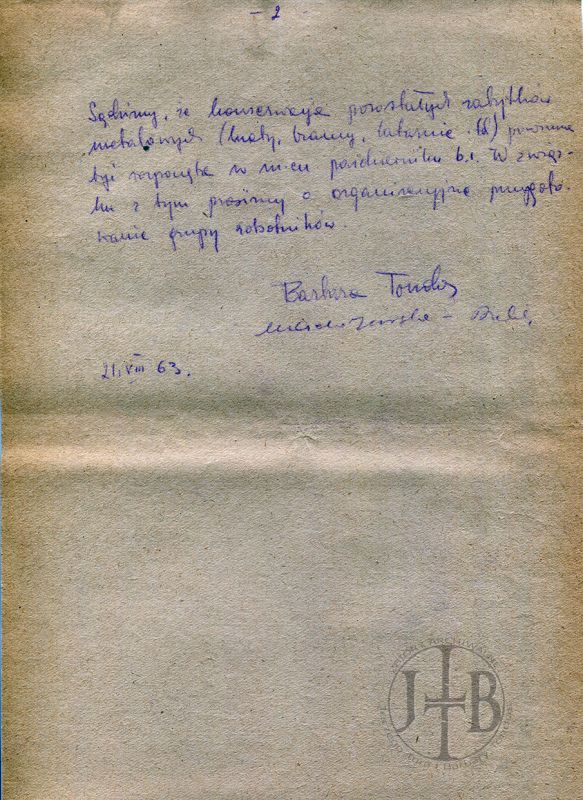 - 2 -
Sądzimy, że konserwacja pozostałych zabytków
metalowych (kraty, bramy, latarnie itd) powinna
być rozpoczęta w m-cu październiku b.r. W związ-
ku z tym prosimy o organizacyjne przygoto-
wanie grupy robotników.
Barbara
21.VIII 63.
J B